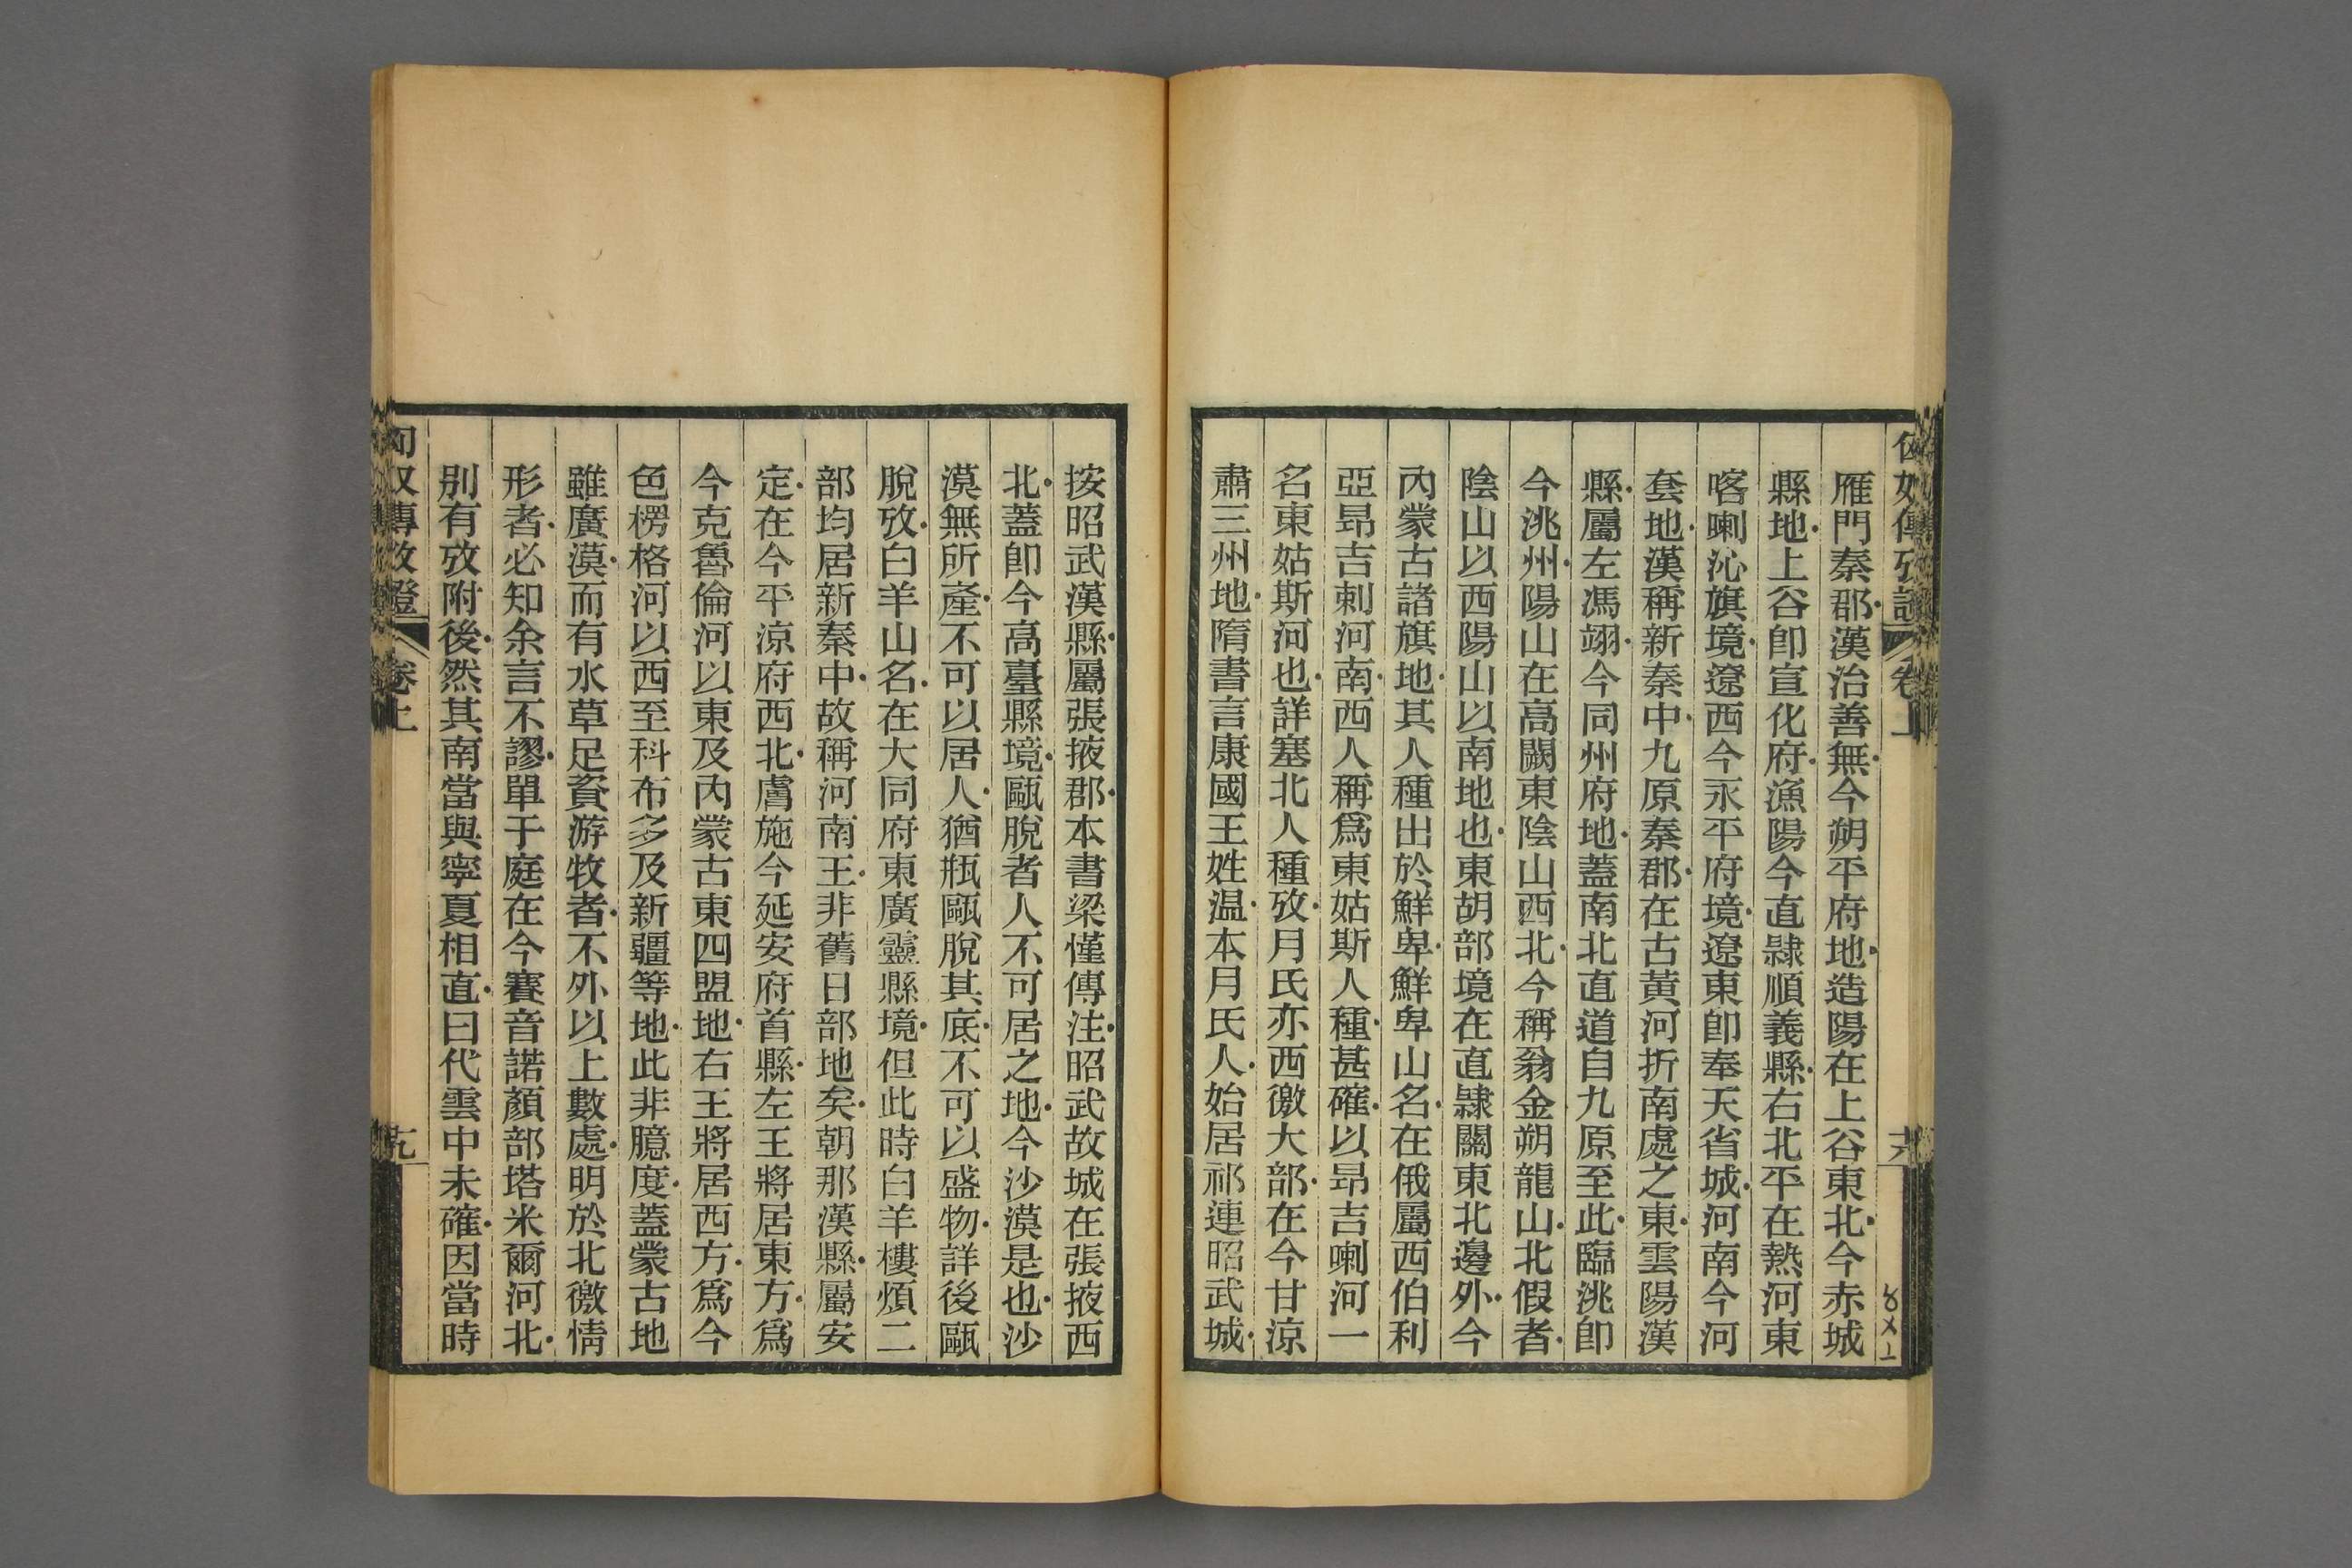 匈奴傳攷證 卷上 六
雁門秦郡漢治善無今朔平府地造陽在上谷東北今赤城
縣地上谷卽宣化府漁陽今直隸順義縣右北平在熱河東
喀喇沁旗境遼西今永平府境遼東卽奉天省城河南今河
套地漢稱新秦中九原秦郡在古黃河折南處之東雲陽漢
縣屬左馮翊今同州府地蓋南北直道自九原至此臨洮卽
今洮州陽山在高闕東陰山西北今稱翁金朔龍山北假者
陰山以西陽山以南地也東胡部境在直隸關東北邊外今
內蒙古諸旗地其人種出於鮮卑鮮卑山名在俄屬西伯利
亞昂吉剌河南西人稱爲東姑斯人種甚確以昂吉喇河一
名東姑斯河也詳塞北人種攷月氏亦西徼大部在今甘涼
肅三州地隋書言康國王姓温本月氏人始居祁連昭武城
按昭武漢縣屬張掖郡本書梁慬傳注昭武故城在張掖西
北蓋卽今高臺縣境甌脫者人不可居之地今沙漠是也沙
漠無所產不可以居人猶瓶甌脫其底不可以盛物詳後甌
脫攷白羊山名在大同府東廣靈縣境但此時白羊樓煩二
部均居新秦中故稱河南王非舊日部地矣朝那漢縣屬安
定在今平涼府西北膚施今延安府首縣左王將居東方爲
今克魯倫河以東及內蒙古東四盟地右王將居西方爲今
色楞格河以西至科布多及新疆等地此非臆度蓋蒙古地
雖廣漠而有水草足資游牧者不外以上數處明於北徼情
形者必知余言不謬單于庭在今賽音諾顏部塔米爾河北
別有攷附後然其南當與寧夏相直曰代雲中未確因當時
匈奴傳攷證 卷上